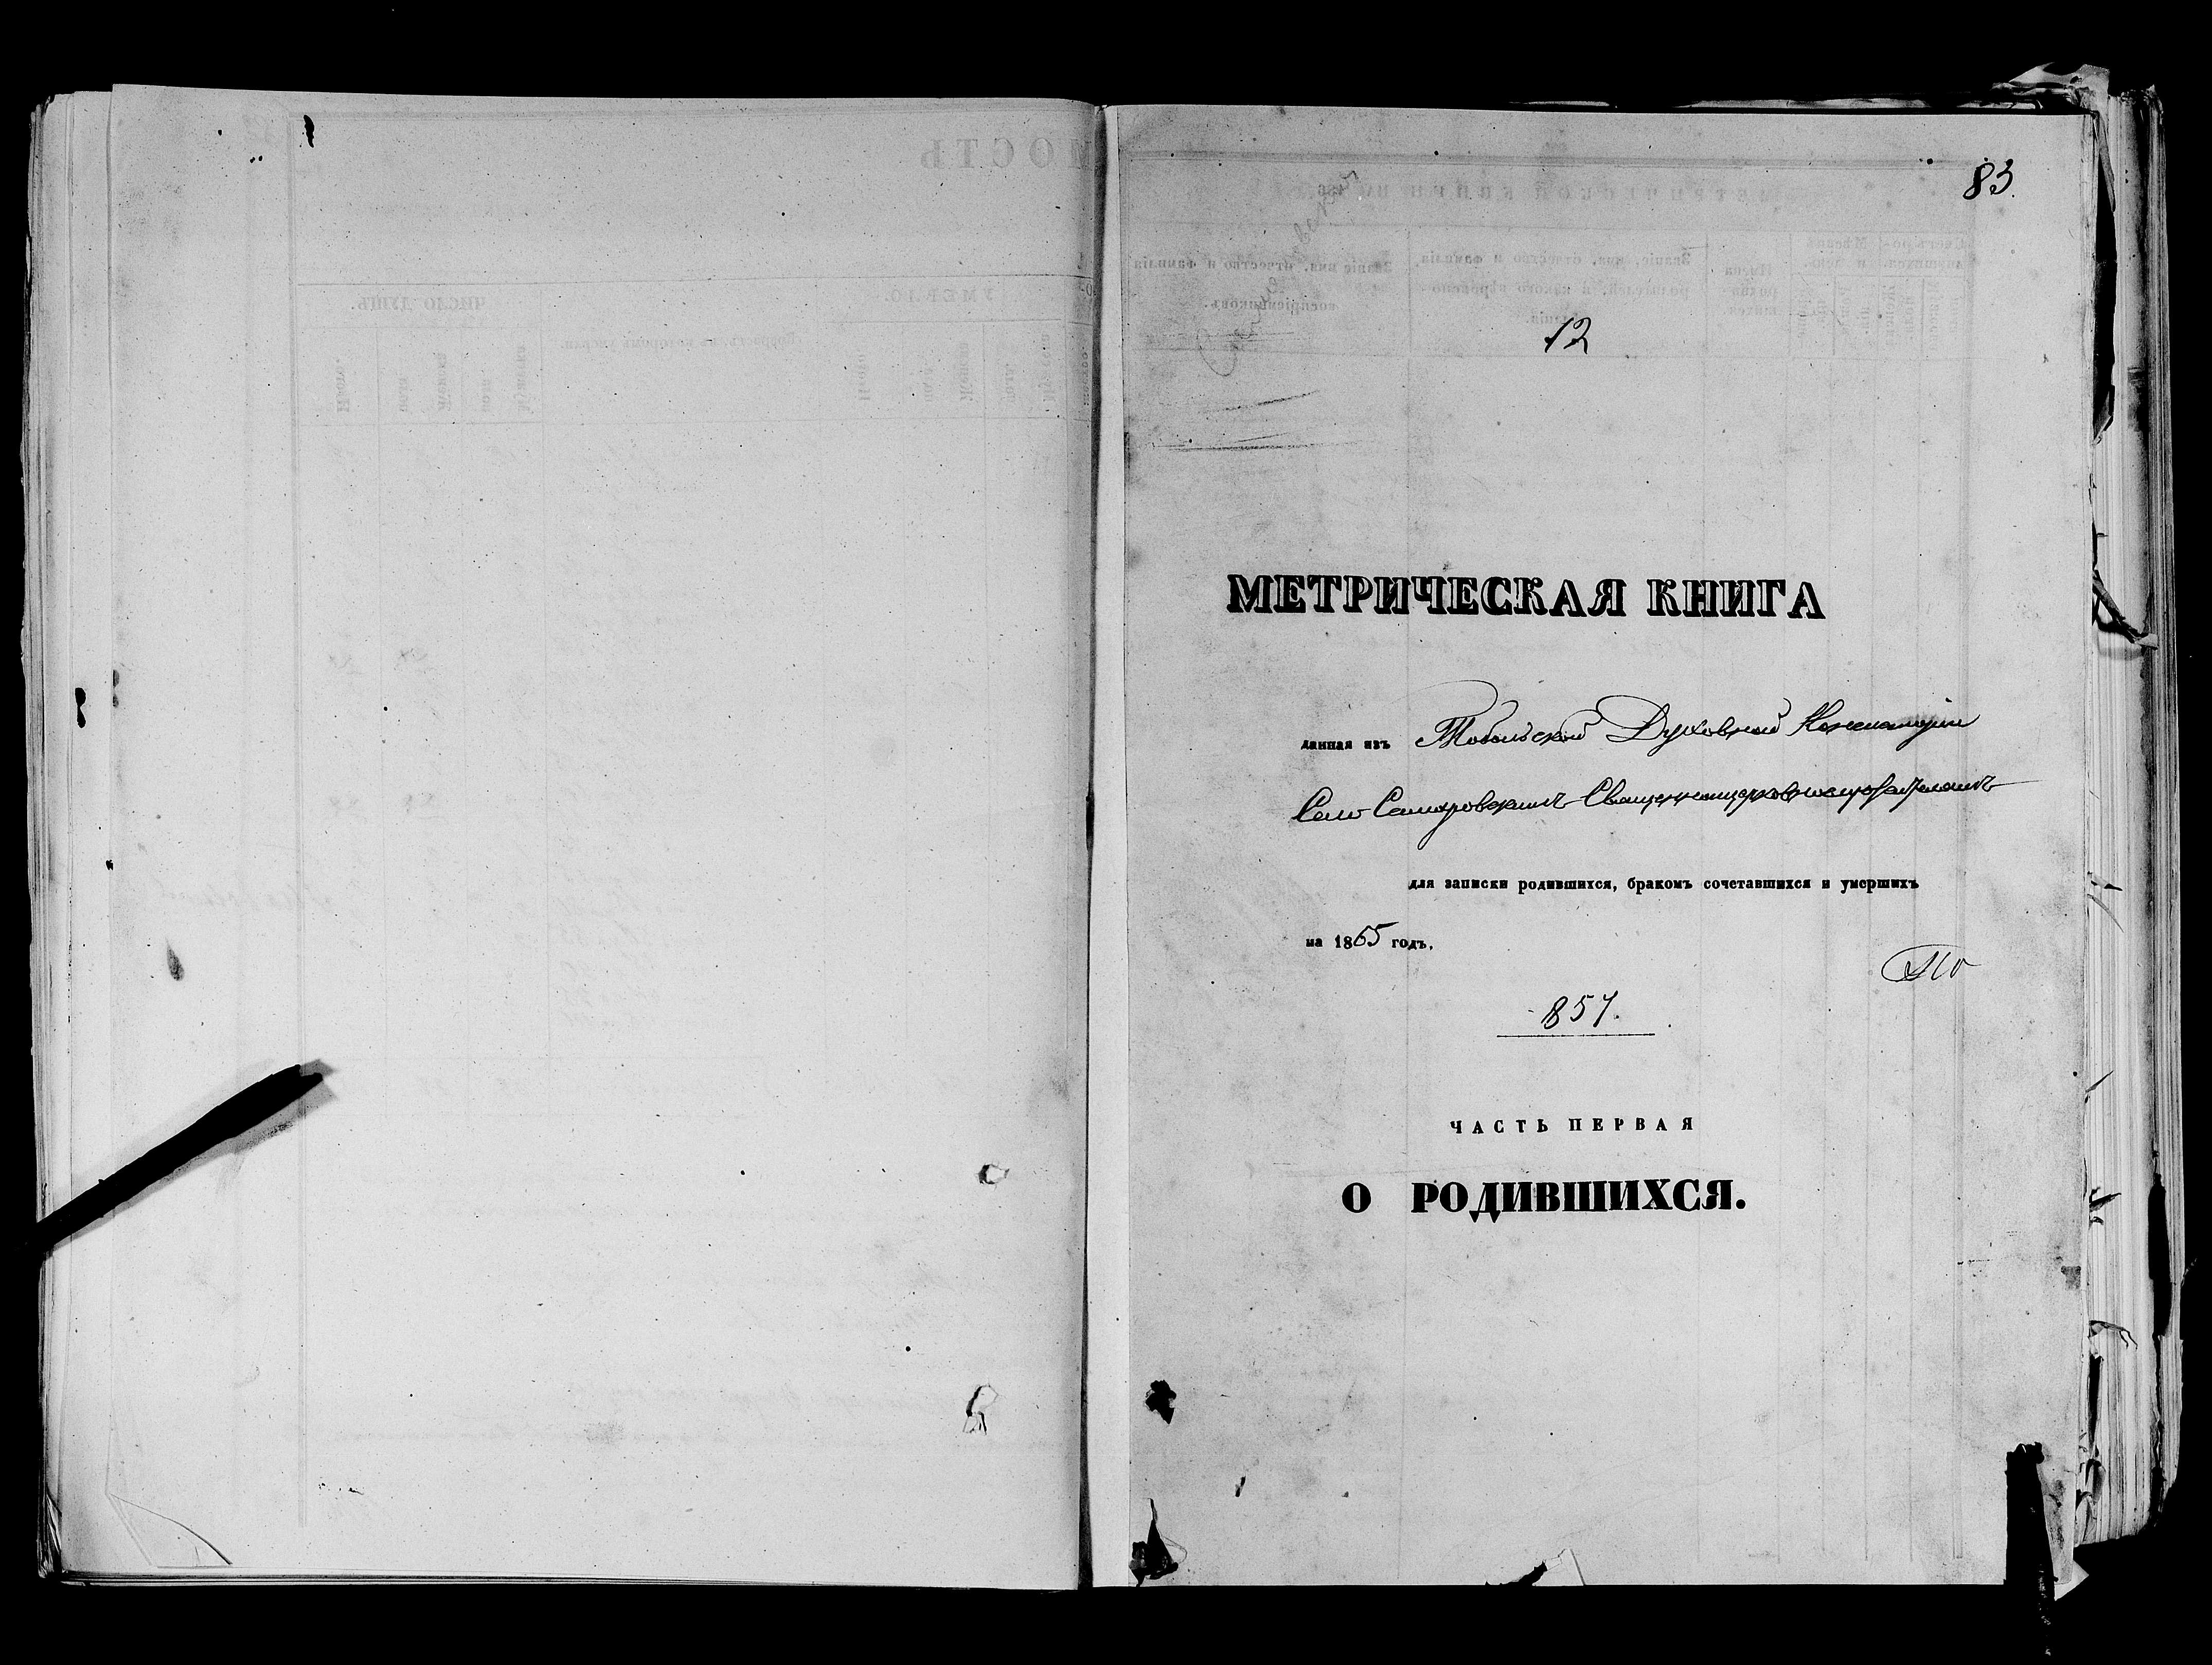 83.
12
МЕТРИЧЕСКАЯ КНИГА
данная изъ Тобольской Духовной Консисторіи
Село Самаровскимъ Священноцерковнослужителямъ
для записки родившихся, бракомъ сочетавшихся и умершихъ
на 1865 годъ.
857.
ЧАСТЬ ПЕРВАЯ
О РОДИВШИХСЯ.